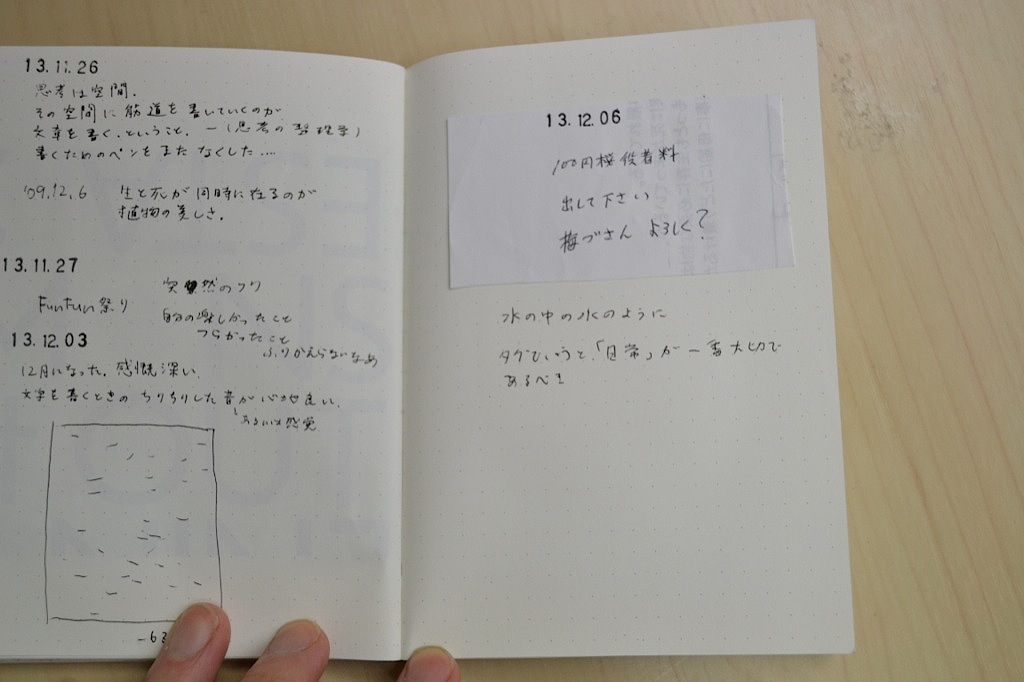 13.11.26
思考は空間.
その空間に筋道を書いていくのが
文章を書く.ということ. ー(思考の整理学)
書くためのペンをまた なくした....
'09.12.6 生と死が同時に在るのが
植物の美しさ.
13.11.27
突然のフリ
FunFun祭り
自分の楽しかったこと
つらかったこと
ふりかえらないなぁ
13.12.03
12月になった. 感慨深い.
文字を書くときの ちりちりした音が心地良い.
あるいは感覚
-63
13.12.06
100円 役者料
出して下さい
梅づさん よろしく?
水の中の水のように
タグでいうと、「日常」が一番大切で
あるべき